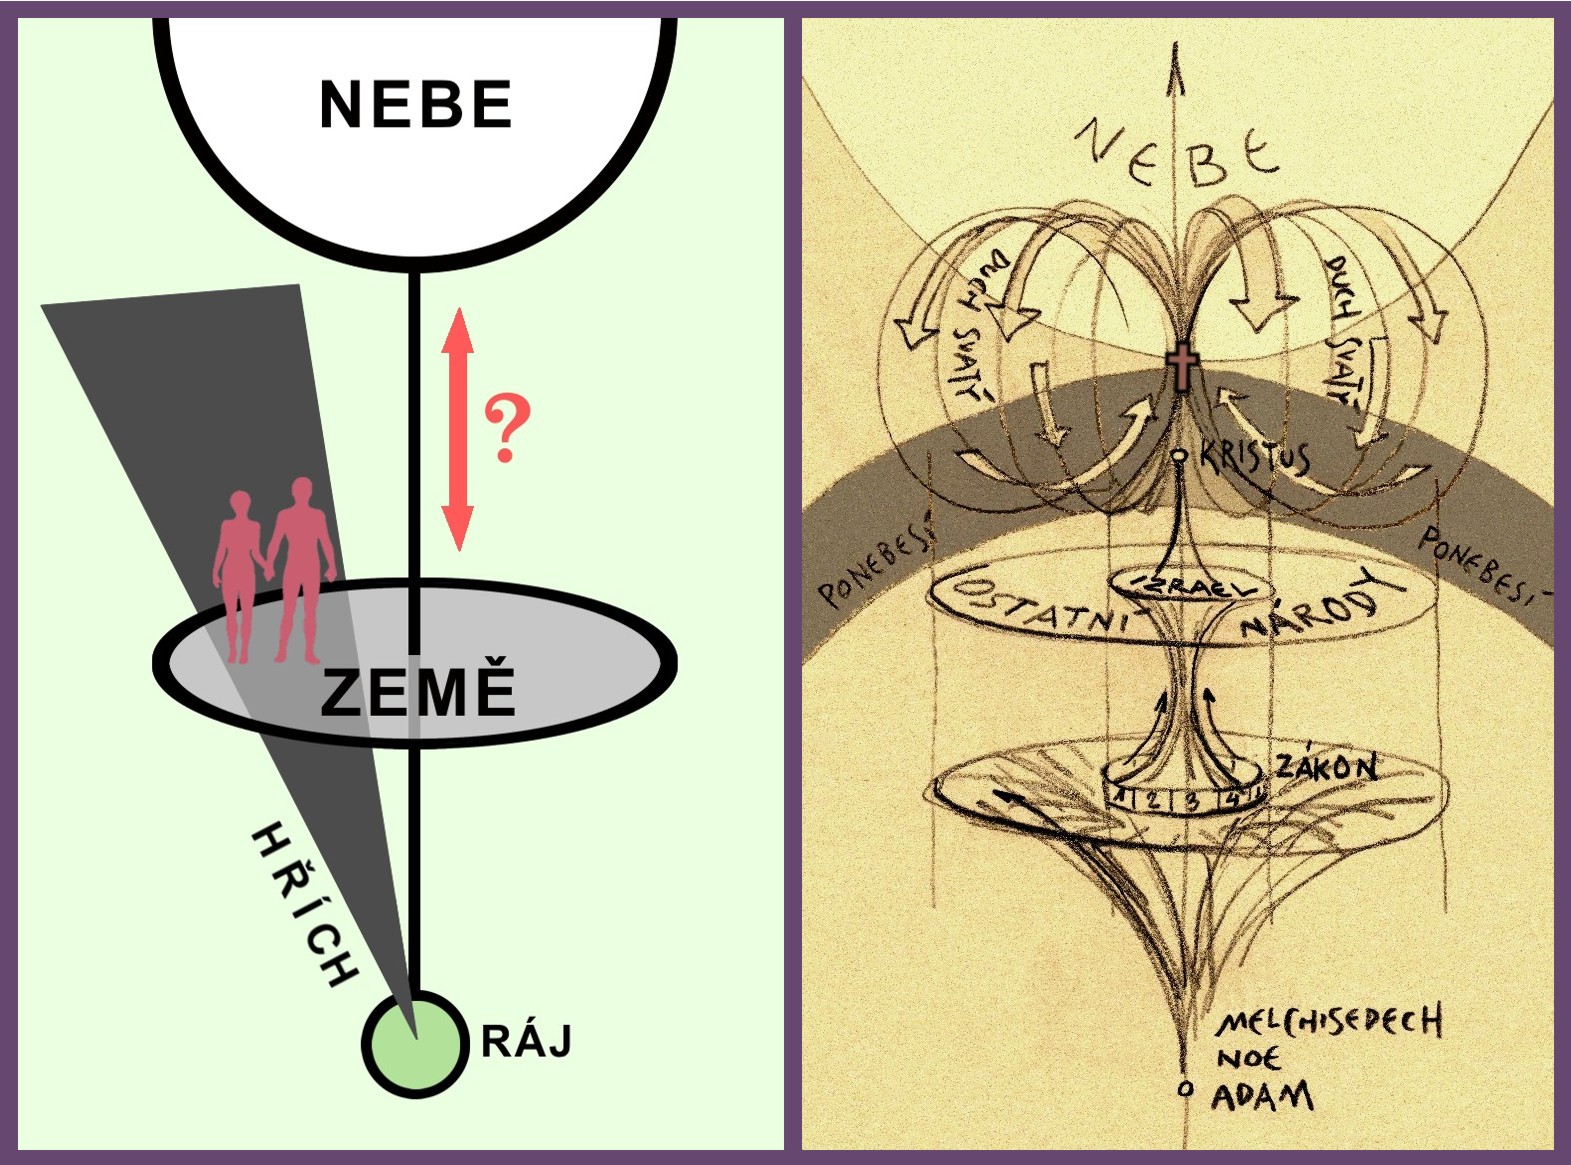 NEBE
?
ZEMĚ
HŘÍCH
RÁJ
NEBE
DUCH SVATÝ
DUCH SVATÝ
KRISTUS
PONEBESÍ
PONEBESÍ
IZRAEL
OSTATNÍ NÁRODY
ZÁKON
1 2 3 4
MELCHISEDECH
NOE
ADAM